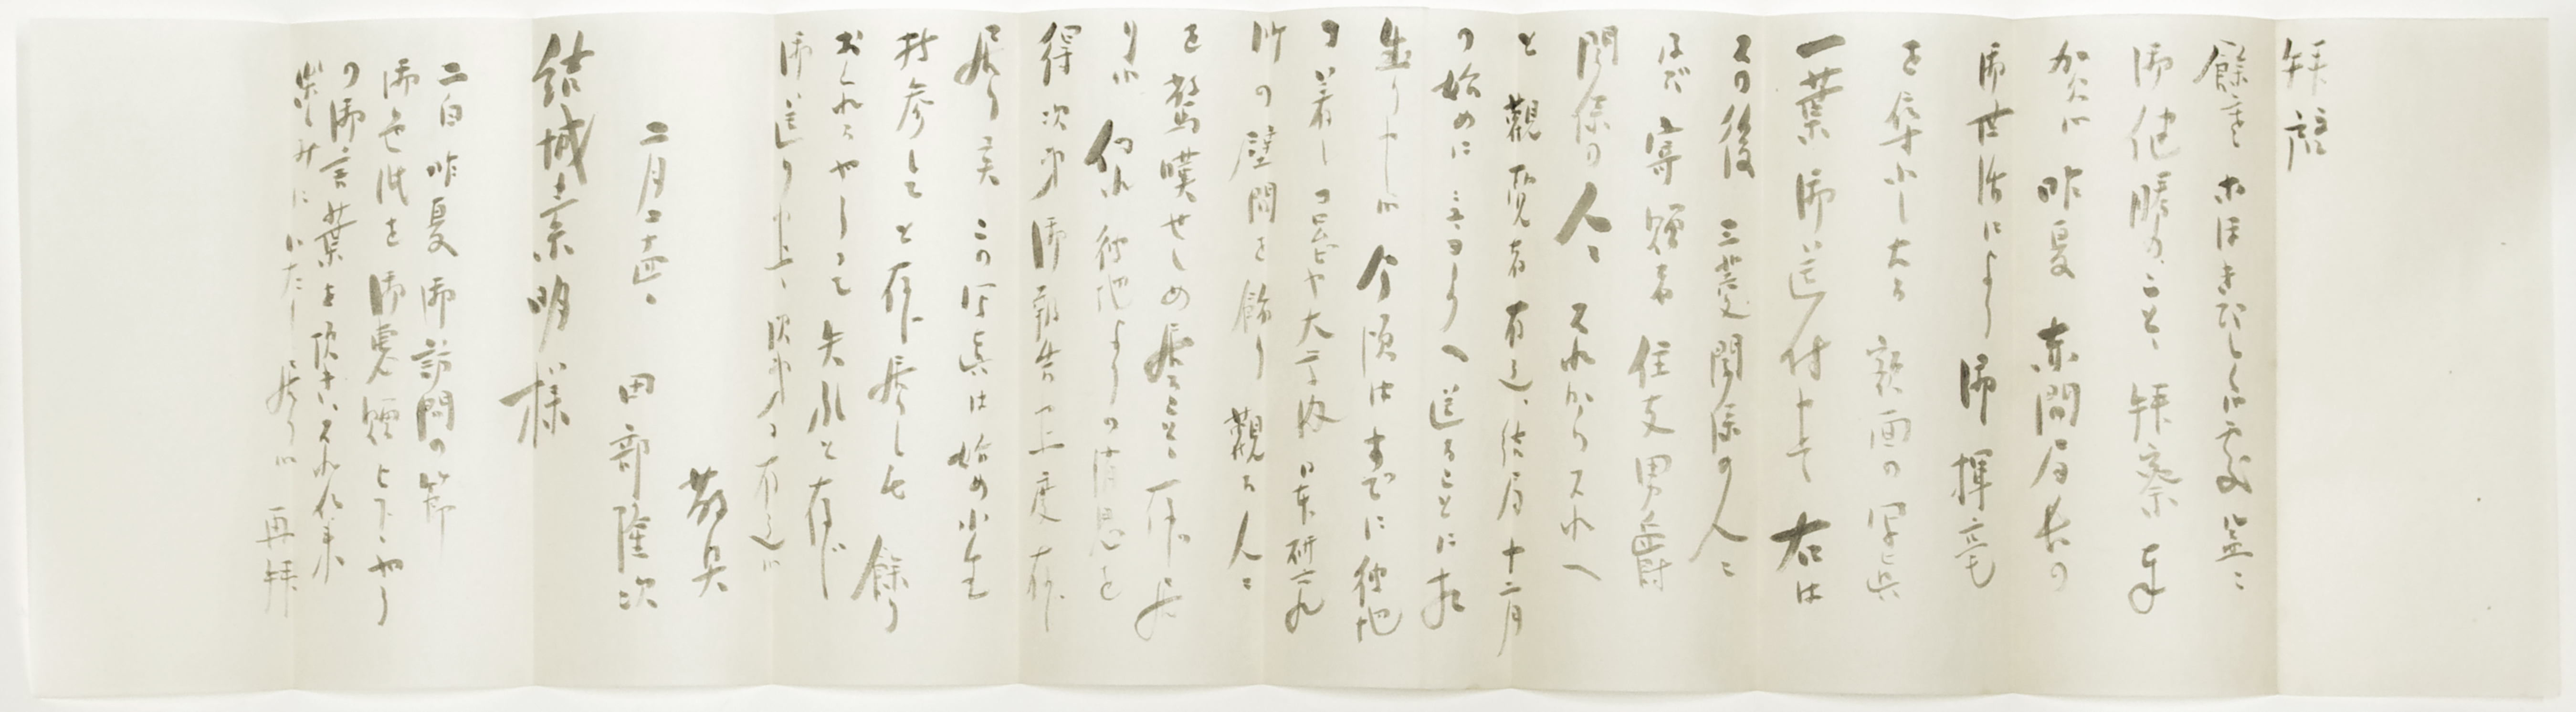 拝啓
餘寒なほきびしく候處益々
御健勝のこと、拝察奉
賀候 昨夏 赤間局長の
御世話により 御揮毫
を集めし大なる 額面の写真
一葉 御送付申候 右は
その後 三菱関係の人々
及び寄贈者 住友男爵
関係の人々 それからそれへ
と 観覧者有之、結局十二月
の始めに 送ることに相
成り申し候 今頃はすでに彼地
に着し コロンビヤ大学内 日本研究
所の壁間を飾り 観る人々
を驚嘆せしめ居ること、存居
り候 何れ彼地よりの消息を
得次第 御報告申上度存
居り候 この写真は始め小生
持参して と存じ居りしも 餘り
おくれるやうにて 失礼と存じ
御送り申上げ候次第に有之候
敬具
二月二十四日 田部隆次
結城素明様
二白 昨夏御訪問の節
御色紙を 御恵贈下さるやう
の御言葉を頂き、それを楽
しみに いたし 居り候 再拝